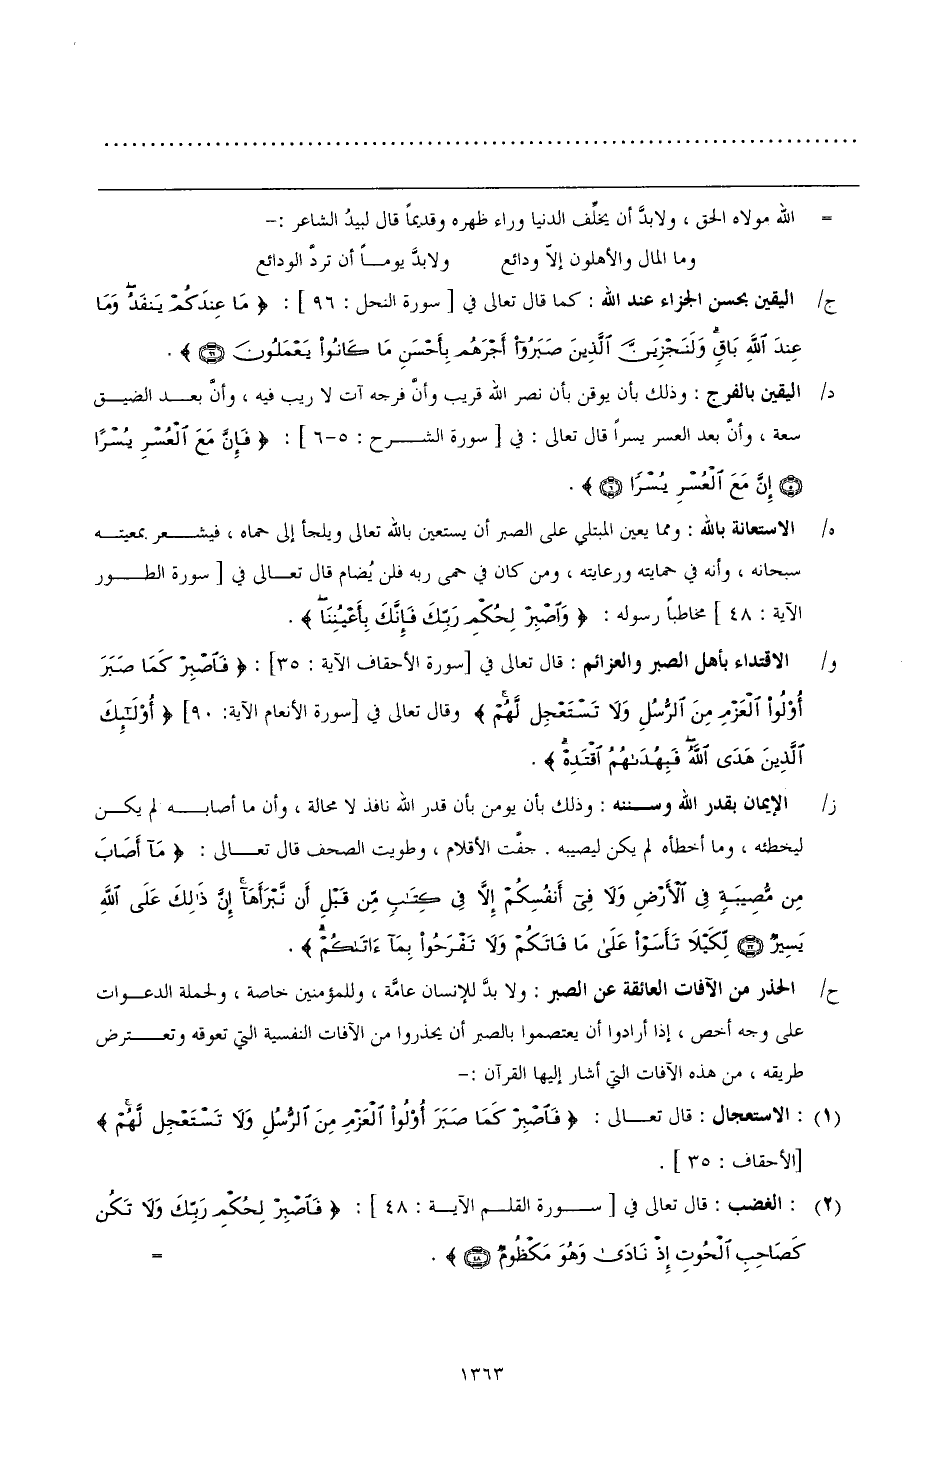 = الله مولاه الحق ، ولابدَّ أن يخلِّف الدنيا وراء ظهره وقديماً قال لبيدُ الشاعر :-
وما المال والأهلون إلاّ ودائع ولابدَّ يومـــاً أن تردَّ الودائع
ج/ اليقين بحسن الجزاء عند الله : كما قال تعالى في [ سورة النحل : ٩٦ ] : ﴿ مَا عِندَكُمْ يَنفَدُ ۖ وَمَا
عِندَ ٱللَّهِ بَاقٍ ۗ وَلَنَجْزِيَنَّ ٱلَّذِينَ صَبَرُوٓا۟ أَجْرَهُم بِأَحْسَنِ مَا كَانُوا۟ يَعْمَلُونَ ۝٩٦ ﴾ .
د/ اليقين بالفرج : وذلك بأن يوقن بأن نصر الله قريب وأنَّ فرجه آت لا ريب فيه ، وأنَّ بعـــد الضيـــق
سعة ، وأنَّ بعد العسر يسراً قال تعالى : في [ سورة الشـــرح : ٥-٦ ] : ﴿ فَإِنَّ مَعَ ٱلْعُسْرِ يُسْرًا
۝٥ إِنَّ مَعَ ٱلْعُسْرِ يُسْرًا ۝٦ ﴾ .
ه/ الاستعانة بالله : ومما يعين المبتلي على الصبر أن يستعين بالله تعالى ويلجأ إلى حماه ، فيشـــعر بمعيتـــه
سبحانه ، وأنه في حمايته ورعايته ، ومن كان في حمى ربه فلن يُضام قال تعـــالى في [ سورة الطـــور
الآية : ٤٨ ] مخاطباً رسوله : ﴿ وَٱصْبِرْ لِحُكْمِ رَبِّكَ فَإِنَّكَ بِأَعْيُنِنَا ۖ ﴾ .
و/ الاقتداء بأهل الصبر والعزائم : قال تعالى في [سورة الأحقاف الآية : ٣٥] : ﴿ فَٱصْبِرْ كَمَا صَبَرَ
أُو۟لُوا۟ ٱلْعَزْمِ مِنَ ٱلرُّسُلِ وَلَا تَسْتَعْجِل لَّهُمْ ۚ ﴾ وقال تعالى في [سورة الأنعام الآية: ٩٠] ﴿ أُو۟لَـٰٓئِكَ
ٱلَّذِينَ هَدَى ٱللَّهُ ۖ فَبِهُدَىٰهُمُ ٱقْتَدِهْ ۗ ﴾ .
ز/ الإيمان بقدر الله وســننه : وذلك بأن يومن بأن قدر الله نافذ لا محالة ، وأن ما أصابـــه لم يكـــن
ليخطئه ، وما أخطأه لم يكن ليصيبه . جفَّت الأقلام ، وطويت الصحف قال تعـــالى : ﴿ مَآ أَصَابَ
مِن مُّصِيبَةٍ فِى ٱلْأَرْضِ وَلَا فِىٓ أَنفُسِكُمْ إِلَّا فِى كِتَـٰبٍ مِّن قَبْلِ أَن نَّبْرَأَهَآ ۚ إِنَّ ذَٰلِكَ عَلَى ٱللَّهِ
يَسِيرٌ ۝٢٢ لِّكَيْلَا تَأْسَوْا۟ عَلَىٰ مَا فَاتَكُمْ وَلَا تَفْرَحُوا۟ بِمَآ ءَاتَىٰكُمْ ۗ ﴾ .
ح/ الحذر من الآفات العائقة عن الصبر : ولا بدَّ للإنسان عامَّة ، وللمؤمنين خاصة ، ولحملة الدعـــوات
على وجه أخص ، إذا أرادوا أن يعتصموا بالصبر أن يحذروا من الآفات النفسية التي تعوقه وتعـــترض
طريقه ، من هذه الآفات التي أشار إليها القرآن :-
(١) : الاستعجال : قال تعـــالى : ﴿ فَٱصْبِرْ كَمَا صَبَرَ أُو۟لُوا۟ ٱلْعَزْمِ مِنَ ٱلرُّسُلِ وَلَا تَسْتَعْجِل لَّهُمْ ۚ ﴾
[الأحقاف : ٣٥ ] .
(٢) : الغضب : قال تعالى في [ ســـورة القلـــم الآيـــة : ٤٨ ] : ﴿ فَٱصْبِرْ لِحُكْمِ رَبِّكَ وَلَا تَكُن
كَصَاحِبِ ٱلْحُوتِ إِذْ نَادَىٰ وَهُوَ مَكْظُومٌ ۝٤٨ ﴾ . =
١٣٦٣